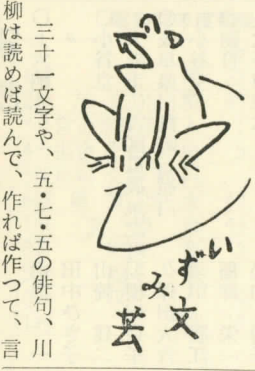 いずみ文芸
三十一文字や、五・七・五の俳句、川
柳は読めば読んで、作れば作つて、言